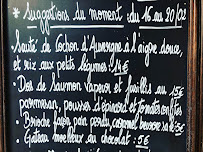 * Suggestions du moment : du 16 au 20/02
• Sauté de Cochon d'Auvergne à l'aigre doux,
et riz aux petits légumes : 14€
• Dos de Saumon vapeur et fusillis au 15€
parmesan, pousses d'épinard et tomates confites
• Brioche façon pain perdu, caramel beurre salé 5€
• Gateau moelleux au chocolat : 5€